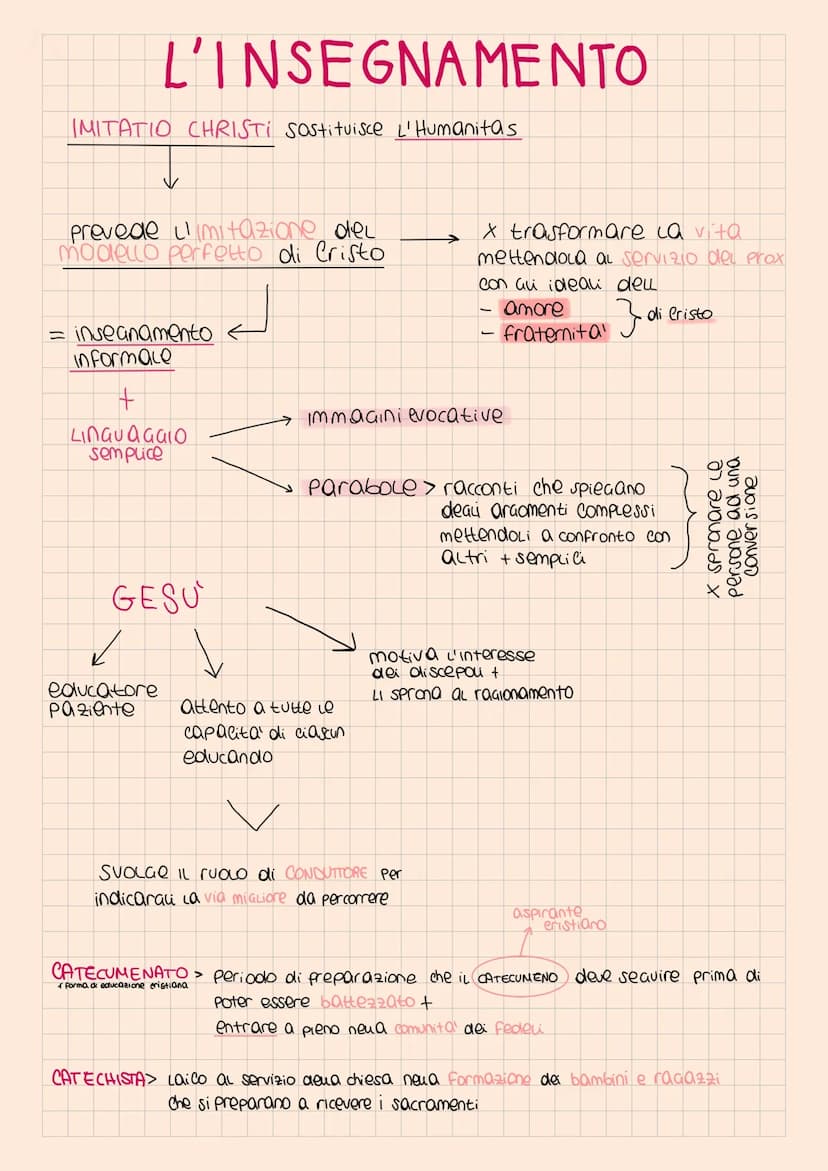 L'INSEGNAMENTO
IMITATIO CHRISTI sostituisce L'Humanitas
prevede L'imitazione del
modello perfetto di Cristo
x trasformare la vita
mettendola al servizio del prox
con gli ideali dell
- amore
- fraternita'
} di Cristo
= insegnamento
informale
+
Linguaggio
semplice
immagini evocative
parabole > racconti che spiegano
degli argomenti complessi
mettendoli a confronto con
altri + semplici
x spronare le
persone ad una
conversione
GESU'
educatore
paziente
attento a tutte le
capacita' di ciascun
educando
motiva l'interesse
dei discepoli +
li sprona al ragionamento
svolge il ruolo di CONDUTTORE per
indicargli la via migliore da percorrere
aspirante
cristiano
CATECUMENATO > periodo di preparazione che il CATECUMENO deve seguire prima di
forma di educazione cristiana
poter essere battezzato +
entrare a pieno nella comunita' dei fedeli
CATECHISTA > Laico al servizio della chiesa nella formazione dei bambini e ragazzi
che si preparano a ricevere i sacramenti